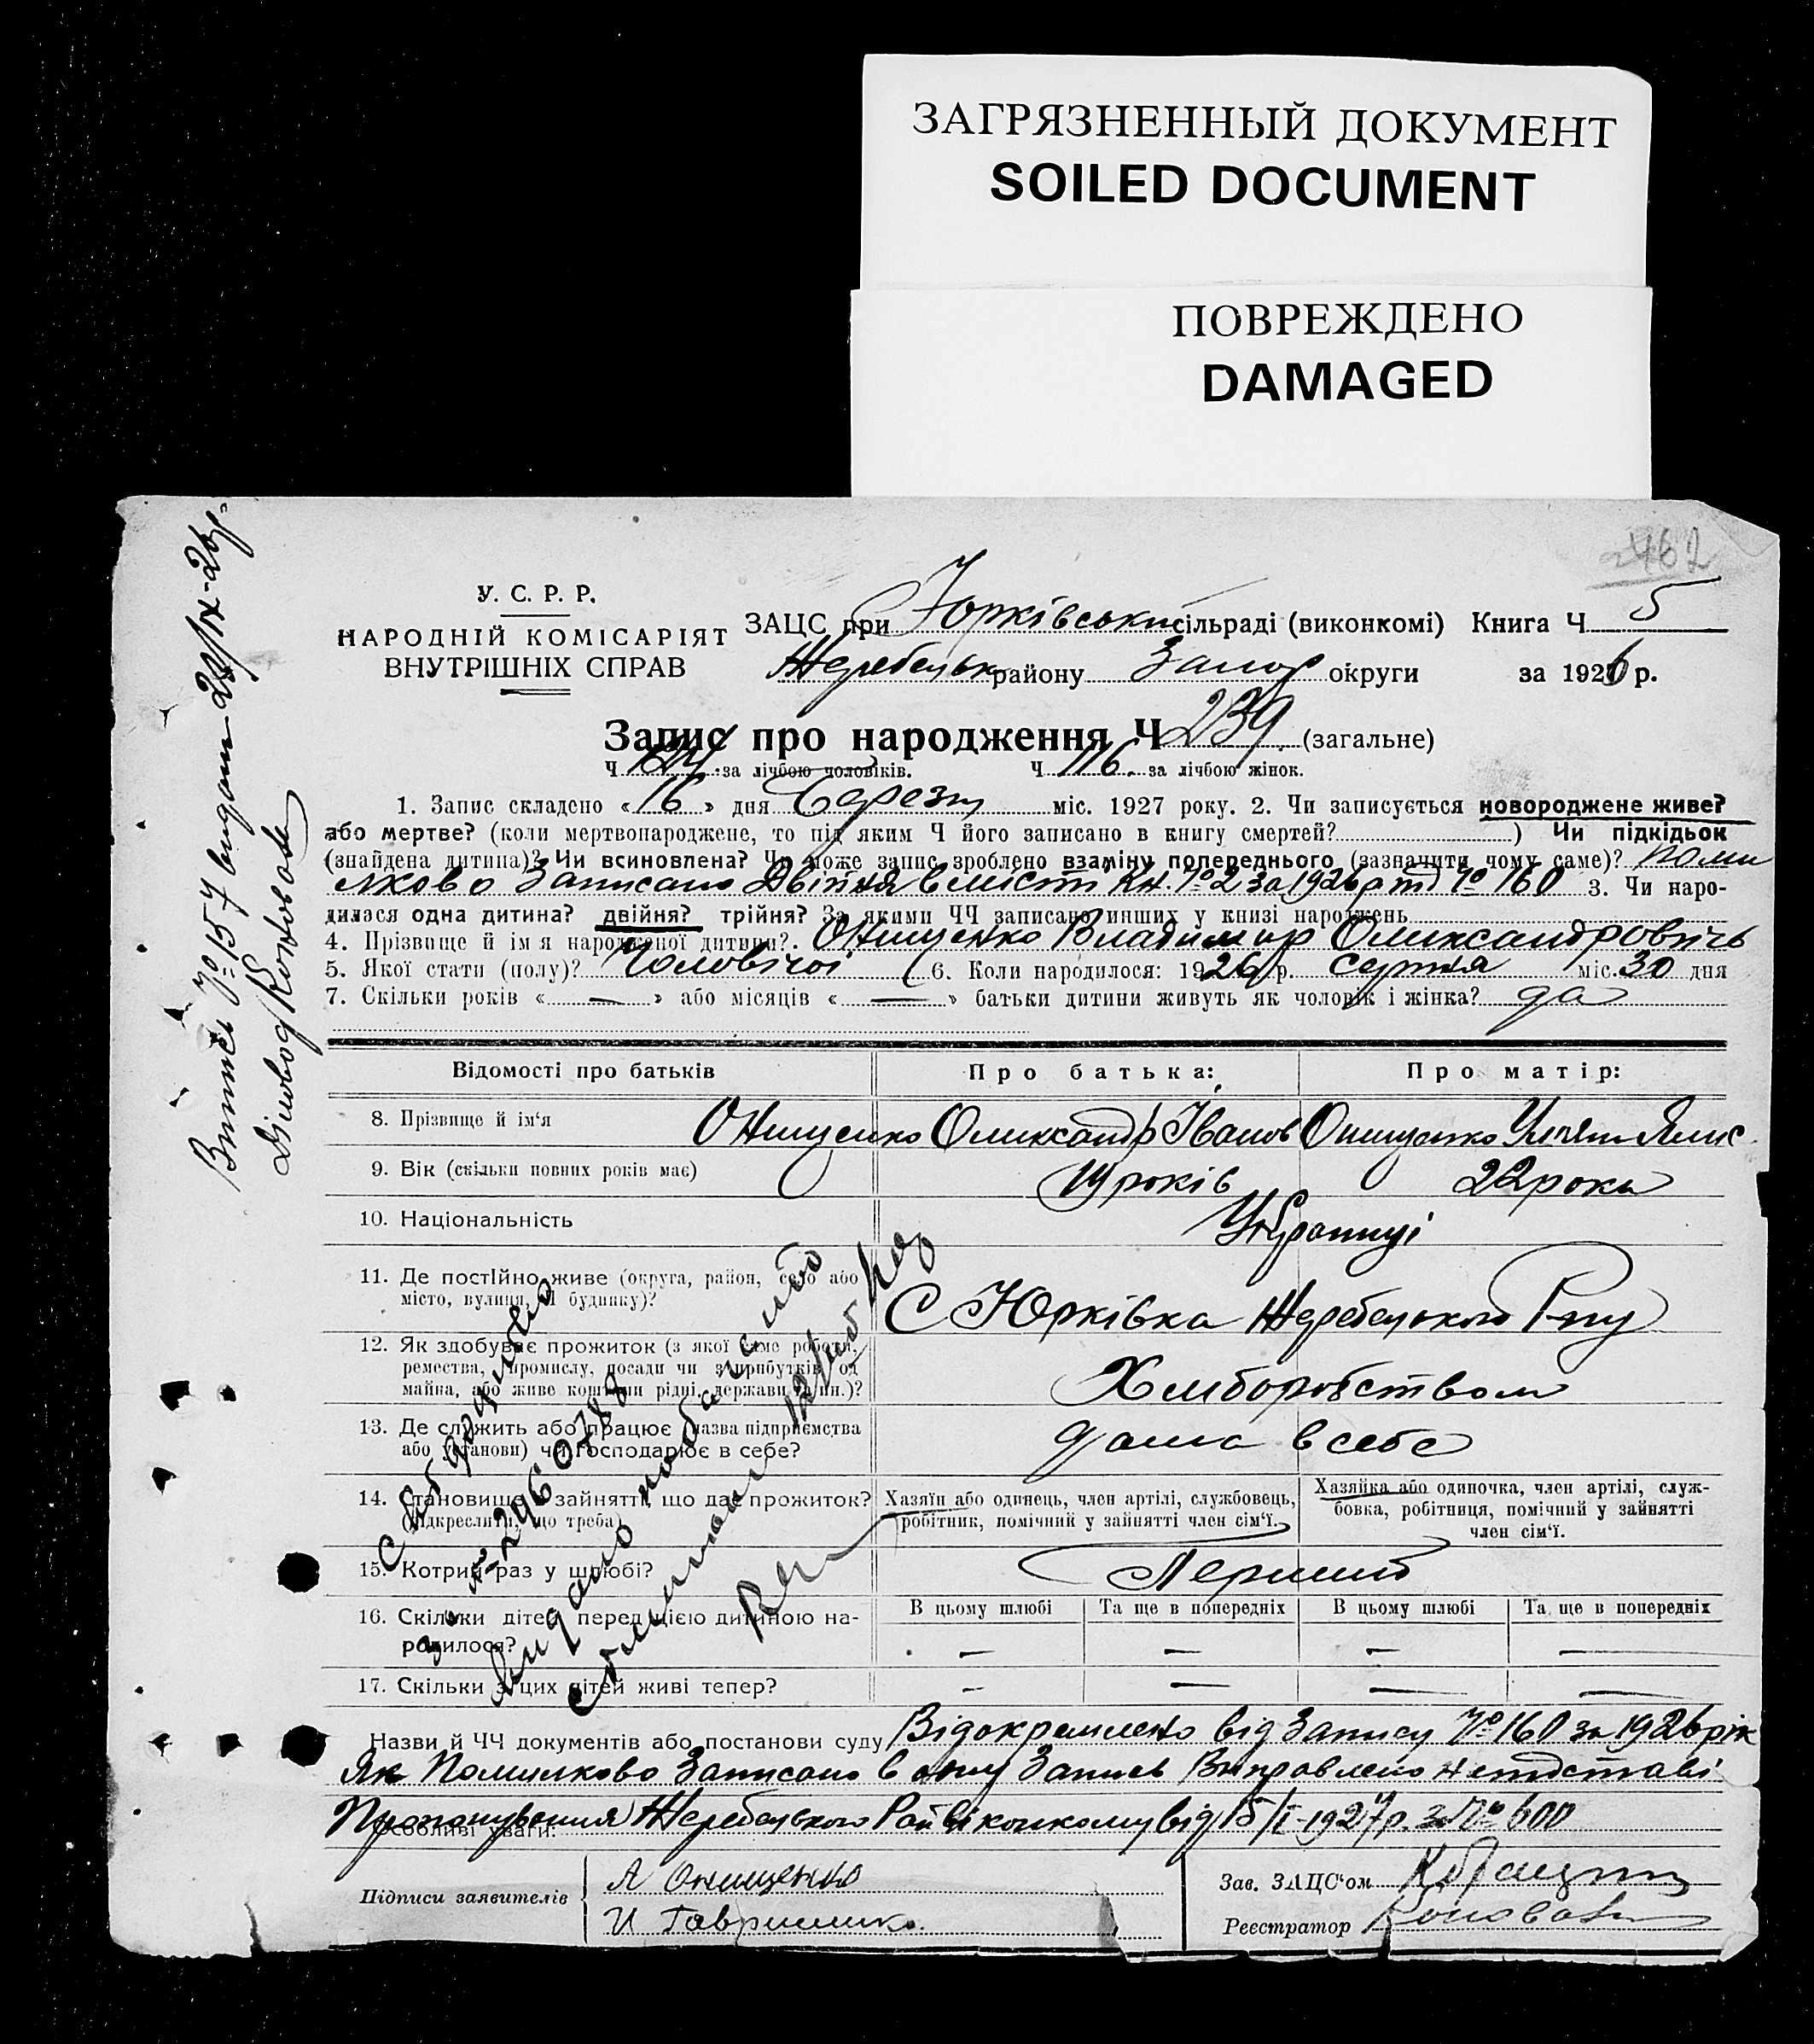 ЗАГРЯЗНЕННЫЙ ДОКУМЕНТ
SOILED DOCUMENT
ПОВРЕЖДЕНО
DAMAGED
462
У. С. Р. Р.
НАРОДНІЙ КОМІСАРІЯТ
ВНУТРІШНІХ СПРАВ
ЗАЦС при Юрківський сільраді (виконкомі) Книга Ч 5
Жеребецьк району Запор округи за 1926 р.
Запис про народження Ч 239 (загальне)
Ч 124 за лічбою чоловіків. Ч 116 за лічбою жінок.
1. Запис складено « 16 » дня Березн міс. 1927 року. 2. Чи записується новороджене живе?
або мертве? (коли мертвонароджене, то під яким Ч його записано в книгу смертей? ) Чи підкідьок
(знайдена дитина)? Чи всиновлена? Чи може запис зроблено взаміну попереднього (зазначити чому саме)? поми
лково Записано Двійня в місті Кн. № 2 за 1926 р під № 160 3. Чи наро-
дилася одна дитина? двійня? трійня? За якими ЧЧ записано инших у книзі народжень
4. Прізвище й ім'я народженої дитини? Онищенко Владимир Олександровичь
5. Якої стати (полу)? Чоловічої 6. Коли народилося: 1926 р. серпня міс. 30 дня
7. Скільки років « — » або місяців « — » батьки дитини живуть як чоловік і жінка? да
Відомості про батьків Про батька: Про матір:
8. Прізвище й ім'я Онищенко Олександр Іванов Онищенко
9. Вік (скільки повних років має) 19 років 22 роки
10. Національність Українці
11. Де постійно живе (округа, район, село або
місто, вулиця, Ч будинку)? С Юрківка Жеребецького Р-ну
12. Як здобуває прожиток (з якої саме роботи,
ремества, промислу, посади чи з прибутків од
майна, або живе коштами рідні, держави та ин.)? Хліборобством
13. Де служить або працює (назва підприємства
або установи) чи господарює в себе? дома в себе
14. Становище в зайнятті, що дає прожиток?
(підкреслити, що треба)
Хазяїн або одинець, член артілі, службовець,
робітник, помічний у зайнятті член сім'ї.
Хазяйка або одиночка, член артілі, служ-
бовка, робітниця, помічний у зайнятті
член сім'ї.
15. Котрий раз у шлюбі? Перший
16. Скільки дітей перед цією дитиною на-
родилося?
В цьому шлюбі Та ще в попередніх В цьому шлюбі Та ще в попередніх
— — — —
17. Скільки з цих дітей живі тепер? — — — —
Назви й ЧЧ документів або постанови суду Відокремлено від Запису № 160 за 1926 рік
Як Помилково Записано в одну Запись Виправлено на підставі
Особливі уваги: Пропонування Жеребецького Райвіконкому від 15/I-1927 р. за № 600
Підписи заявителів
А Онищенко
И Гавришко.
Зав. ЗАЦС'ом
Реєстратор Коновал
Випись № 157 видана 28/IX-26 р.
Діловод Коновал